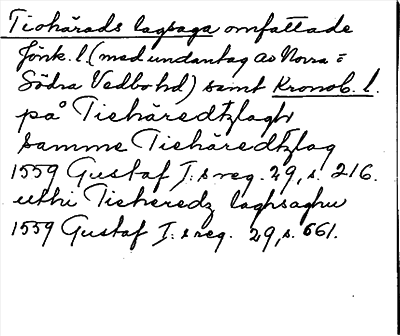 Tiohärads lagsaga omfattade
Jönk. l. (med undantag av Norra =
Södra Vedbo hd) samt Kronob. l.
på Tiehäredtzlaghr
samme Tiehäredtzlag
1559 Gustaf I:s reg. 29, s. 216.
uthi Tieheredz laghsaghu
1559 Gustaf I:s reg. 29, s. 661.